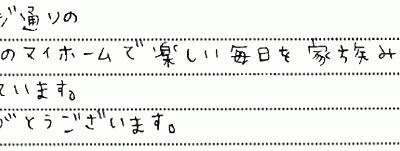 ジ通りの
のマイホームで楽しい毎日を家族み
ています。
がとうございます。